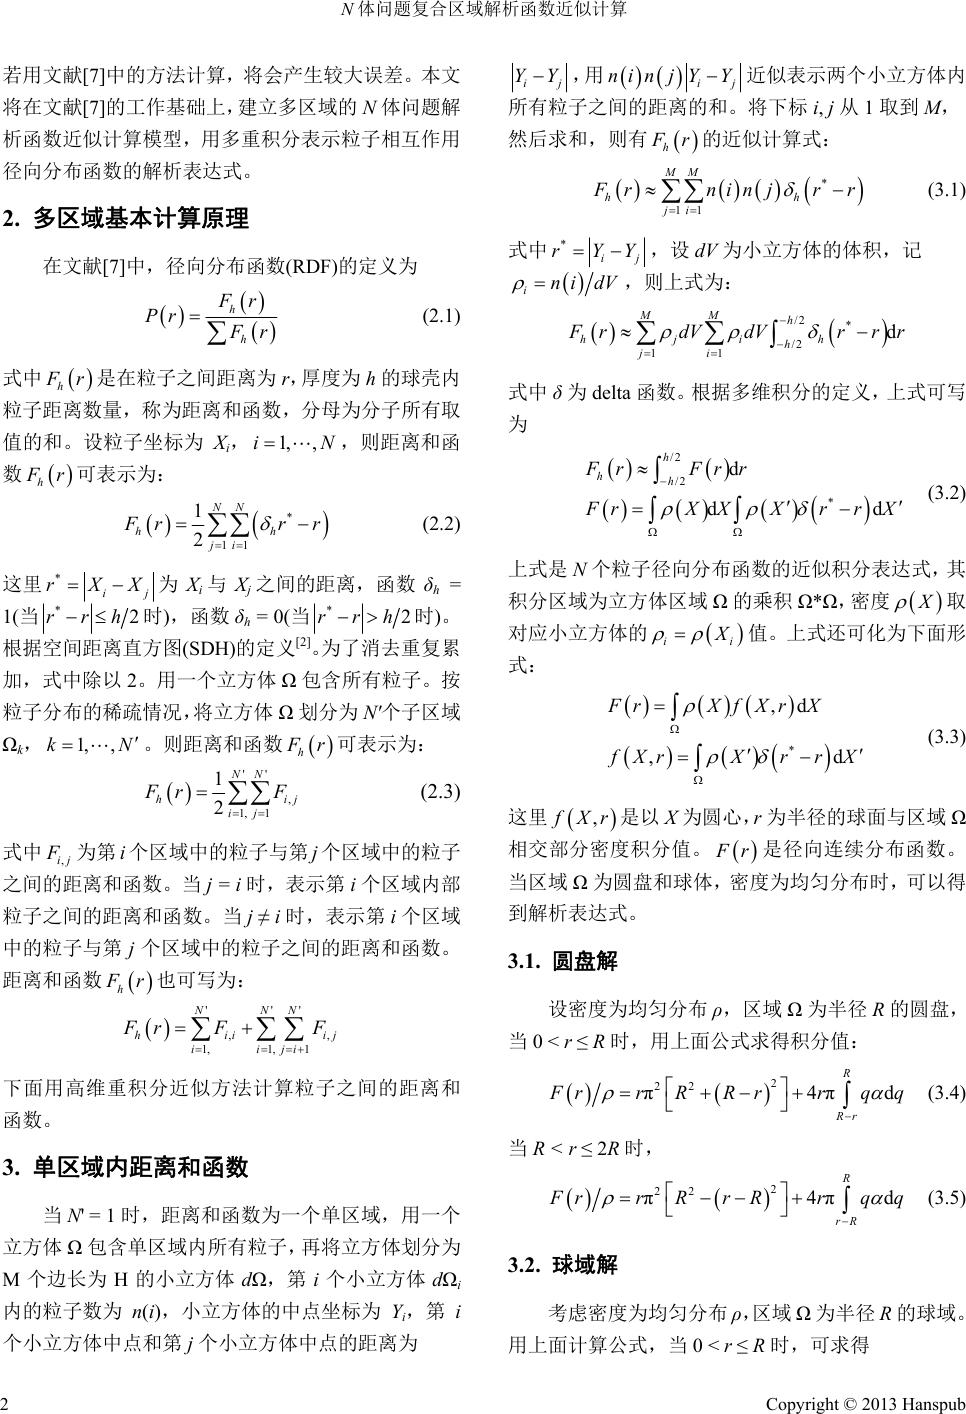 N 体问题复合区域解析函数近似计算
若用文献[7]中的方法计算，将会产生较大误差。本文
将在文献[7]的工作基础上，建立多区域的 N 体问题解
析函数近似计算模型，用多重积分表示粒子相互作用
径向分布函数的解析表达式。
2. 多区域基本计算原理
在文献[7]中，径向分布函数(RDF)的定义为
P(r) = F_h(r) / ∑F_h(r) (2.1)
式中 F_h(r) 是在粒子之间距离为 r，厚度为 h 的球壳内
粒子距离数量，称为距离和函数，分母为分子所有取
值的和。设粒子坐标为 X_i，i = 1,⋯,N，则距离和函
数 F_h(r) 可表示为：
F_h(r) = 1/2 ∑_{j=1}^{N} ∑_{i=1}^{N} δ_h(r* − r) (2.2)
这里 r* = |X_i − X_j| 为 X_i 与 X_j 之间的距离，函数 δ_h =
1(当 r* − r ≤ h/2 时)，函数 δ_h = 0(当 r* − r > h/2 时)。
根据空间距离直方图(SDH)的定义[2]。为了消去重复累
加，式中除以 2。用一个立方体 Ω 包含所有粒子。按
粒子分布的稀疏情况，将立方体 Ω 划分为 N′个子区域
Ω_k，k = 1,⋯,N′。则距离和函数 F_h(r) 可表示为：
F_h(r) = 1/2 ∑_{i=1,}^{N'} ∑_{j=1}^{N'} F_{i,j} (2.3)
式中 F_{i,j} 为第 i 个区域中的粒子与第 j 个区域中的粒子
之间的距离和函数。当 j = i 时，表示第 i 个区域内部
粒子之间的距离和函数。当 j ≠ i 时，表示第 i 个区域
中的粒子与第 j 个区域中的粒子之间的距离和函数。
距离和函数 F_h(r) 也可写为：
F_h(r) = ∑_{i=1,}^{N'} F_{i,i} + ∑_{i=1,}^{N'} ∑_{j=i+1}^{N'} F_{i,j}
下面用高维重积分近似方法计算粒子之间的距离和
函数。
3. 单区域内距离和函数
当 N' = 1 时，距离和函数为一个单区域，用一个
立方体 Ω 包含单区域内所有粒子，再将立方体划分为
M 个边长为 H 的小立方体 dΩ，第 i 个小立方体 dΩ_i
内的粒子数为 n(i)，小立方体的中点坐标为 Y_i，第 i
个小立方体中点和第 j 个小立方体中点的距离为
|Y_i − Y_j|，用 n(i)n(j)|Y_i − Y_j| 近似表示两个小立方体内
所有粒子之间的距离的和。将下标 i, j 从 1 取到 M，
然后求和，则有 F_h(r) 的近似计算式：
F_h(r) ≈ ∑_{j=1}^{M} ∑_{i=1}^{M} n(i)n(j)δ_h(r* − r) (3.1)
式中 r* = |Y_i − Y_j|，设 dV 为小立方体的体积，记
ρ_i = n(i)/dV，则上式为：
F_h(r) ≈ ∑_{j=1}^{M} ρ_j dV ∑_{i=1}^{M} ρ_i dV ∫_{−h/2}^{h/2} δ_h(r* − r)dr
式中 δ 为 delta 函数。根据多维积分的定义，上式可写
为
F_h(r) ≈ ∫_{−h/2}^{h/2} F(r)dr
F(r) = ∫_Ω ρ(X)dX ∫_Ω ρ(X′)δ(r* − r)dX′ (3.2)
上式是 N 个粒子径向分布函数的近似积分表达式，其
积分区域为立方体区域 Ω 的乘积 Ω*Ω，密度 ρ(X) 取
对应小立方体的 ρ_i = ρ(X_i) 值。上式还可化为下面形
式：
F(r) = ∫_Ω ρ(X)f(X,r)dX
f(X,r) = ∫_Ω ρ(X′)δ(r* − r)dX′ (3.3)
这里 f(X,r) 是以 X 为圆心，r 为半径的球面与区域 Ω
相交部分密度积分值。F(r) 是径向连续分布函数。
当区域 Ω 为圆盘和球体，密度为均匀分布时，可以得
到解析表达式。
3.1. 圆盘解
设密度为均匀分布 ρ，区域 Ω 为半径 R 的圆盘，
当 0 < r ≤ R 时，用上面公式求得积分值：
F(r)/ρ = rπ²[R² + (R − r)²] + 4rπ ∫_{R−r}^{R} qαdq (3.4)
当 R < r ≤ 2R 时，
F(r)/ρ = rπ²[R² − (r − R)²] + 4rπ ∫_{r−R}^{R} qαdq (3.5)
3.2. 球域解
考虑密度为均匀分布 ρ，区域 Ω 为半径 R 的球域。
用上面计算公式，当 0 < r ≤ R 时，可求得
2 Copyright © 2013 Hanspub